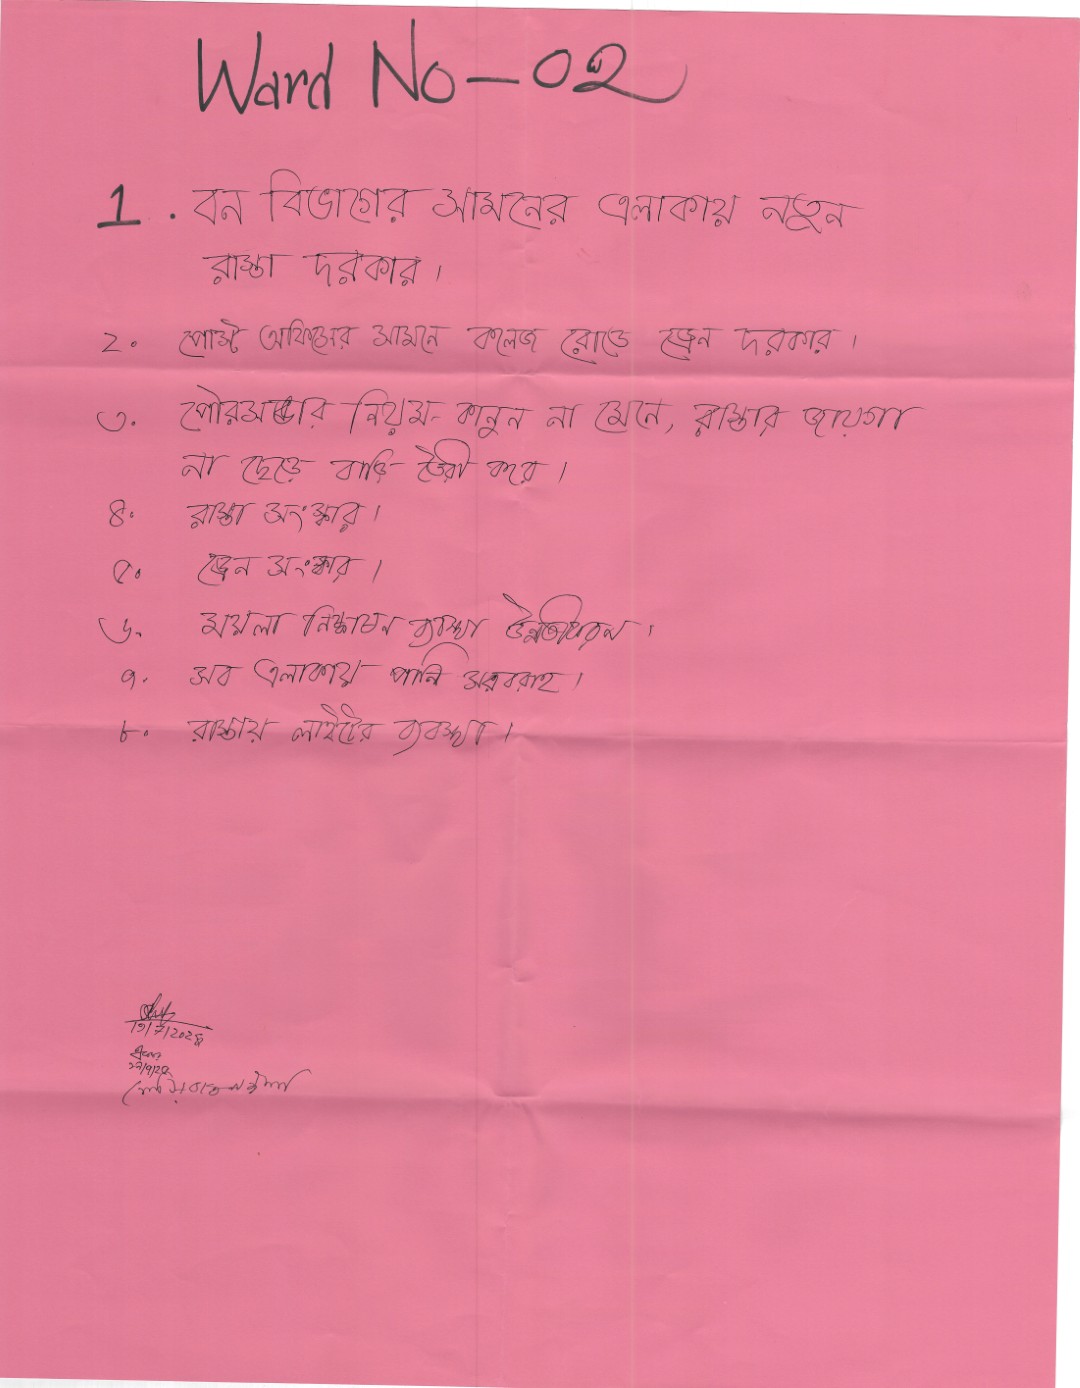 Ward No-02
1. বন বিভাগের সামনের এলাকায় নতুন
রাস্তা দরকার।
২. পোস্ট অফিসের সামনে কলেজ রোডে ড্রেন দরকার।
৩. পৌরসভার নিয়ম-কানুন না মেনে, রাস্তার জায়গা
না ছেড়ে বাড়ি তৈরী করে।
৪. রাস্তা সংস্কার।
৫. ড্রেন সংস্কার।
৬. ময়লা নিষ্কাষন ব্যবস্থা উন্নতীকরন।
৭. সব এলাকায় পানি সরবরাহ।
৮. রাস্তায় লাইটের ব্যবস্থা।